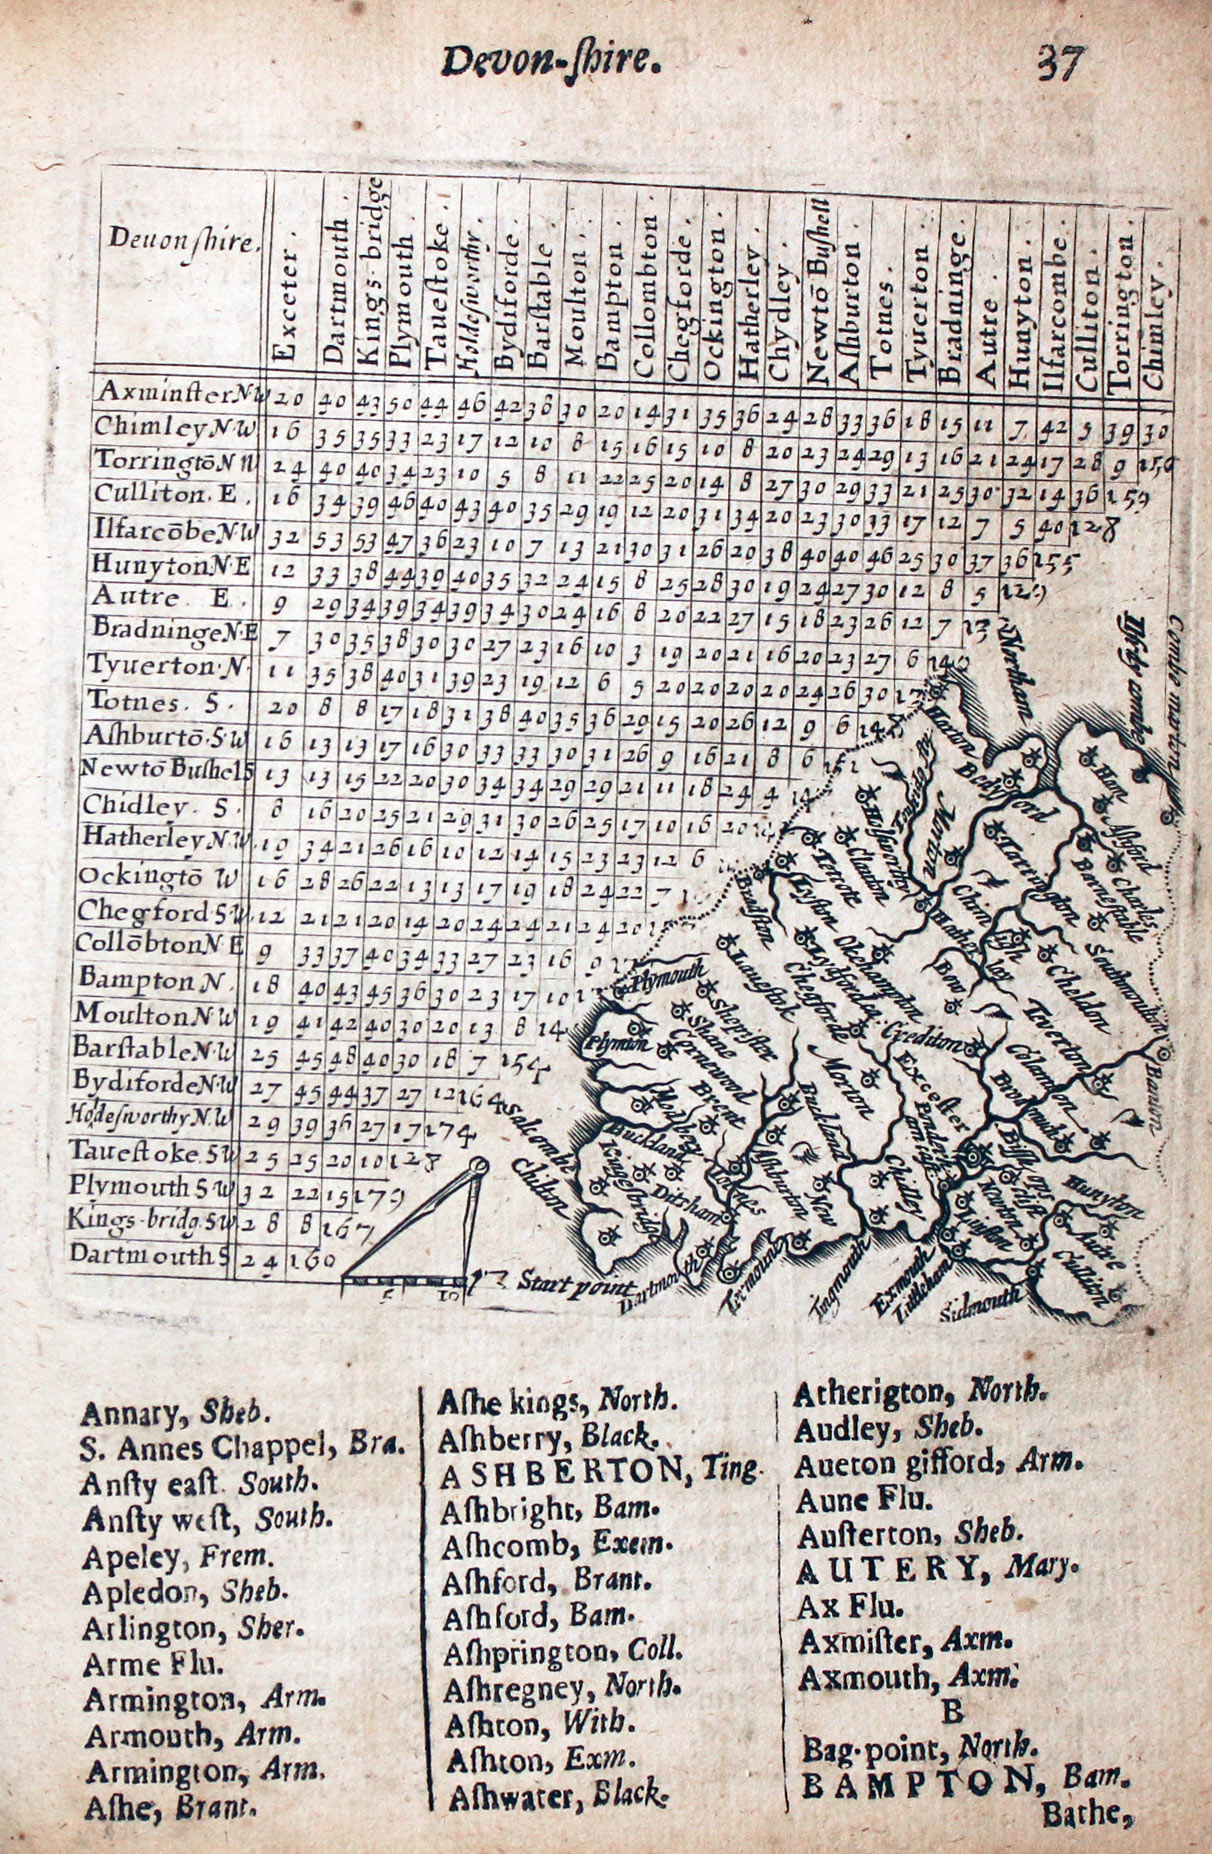 Devon-ſhire.
37
Deuonſhire.
Exceter.
Dartmouth.
Kings-bridge
Plymouth.
Taueſtoke.
Holdeſworthy.
Bydiforde.
Barſtable.
Moulton.
Bampton.
Collombton.
Chegforde.
Ockington.
Hatherley.
Chydley.
Newtō Buſhell
Aſhburton.
Totnes.
Tyuerton.
Bradninge.
Autre.
Hunyton.
Ilfarcombe.
Culliton.
Torrington.
Chimley.
Axminſter N W 20 40 43 50 44 46 42 38 30 20 14 31 35 36 24 28 33 36 18 15 11 7 42 5 39 30
Chimley N W 16 35 35 33 23 17 12 10 8 15 16 15 10 8 20 23 24 29 13 16 21 24 17 28 9 156
Torringtō N W 24 40 40 34 23 10 5 8 11 22 25 20 14 8 27 30 29 33 21 25 30 32 14 36 159
Culliton. E. 16 34 39 46 40 43 40 35 29 19 12 20 31 34 20 23 30 33 17 12 7 5 40 128
Ilfarcōbe N W 32 53 53 47 36 23 10 7 13 21 30 31 26 20 38 40 40 46 25 30 37 36 155
Hunyton N E 12 33 38 44 39 40 35 32 24 15 8 25 28 30 19 24 27 30 12 8 5 129
Autre. E. 9 29 34 39 34 39 34 30 24 16 8 20 22 27 15 18 23 26 12 7
Bradninge N E 7 30 35 38 30 30 27 23 16 10 3 19 20 21 16 20 23 27 6
Tyuerton N. 11 35 38 40 31 39 23 19 12 6 5 20 20 20 20 24 26 30
Totnes. S. 20 8 8 17 18 31 38 40 35 36 29 15 20 26 12 9 6
Aſhburtō S W 16 13 13 17 16 30 33 33 30 31 26 9 16 21 8 6
Newtō Buſhel S 13 13 15 22 20 30 34 34 29 29 21 11 18 24 4
Chidley. S. 8 16 20 25 21 29 31 30 26 25 17 10 16 20
Hatherley N W 19 34 21 26 16 10 12 14 15 23 23 12 6
Ockingtō W 16 28 26 22 13 13 17 19 18 24 22 7
Chegford S W 12 21 21 20 14 20 24 24 21 24 20
Collōbton N E 9 33 37 40 34 33 27 23 16 9
Bampton N. 18 40 43 45 36 30 23 17 10
Moulton N W 19 41 42 40 30 20 13 8 14
Barſtable N W 25 45 48 40 30 18 7 154
Bydiforde N W 27 45 44 37 27 12 164
Holdeſworthy N W 29 39 36 27 17 174
Taueſtoke S W 25 25 20 10 128
Plymouth S W 32 22 15 179
Kings-bridg. S W 28 8 167
Dartmouth S 24 160
5 10
Northam
Harton
Bedyford
Combe
Aſhford
Charles
Barneſtable
Torrington
Southmoulton
Cheldon
Holſworthey
Clauton
Tetcote
Lyfton
Bradſton
Lydforde
Okehampton
Chegforde
Laueſtok
Bow
Crediton
Teverton
Colamton
Banton
Plymouth
Shepiſter
Shane
Cornewood
Plymton
Brent
Modbery
Morton
Buckland
Exceſter
Buckland
Kingeſbridge
Ditsham
Totnes
Aſhburton
New
Chidley
Newton
Hunyton
Autre
Culliton
Salcombe
Chilton
Start point
Dartmouth
Tormount
Tingmouth
Exmouth
Littleham
Sidmouth
Annary, Sheb.
S. Annes Chappel, Bra.
Anſty eaſt. South.
Anſty weſt, South.
Apeley, Frem.
Apledon, Sheb.
Arlington, Sher.
Arme Flu.
Armington, Arm.
Armouth, Arm.
Armington, Arm.
Aſhe, Brant.
Aſhe kings, North.
Aſhberry, Black.
ASHBERTON, Ting.
Aſhbright, Bam.
Aſhcomb, Exem.
Aſhford, Brant.
Aſhford, Bam.
Aſhprington, Coll.
Aſhregney, North.
Aſhton, With.
Aſhton, Exm.
Aſhwater, Black.
Atherigton, North.
Audley, Sheb.
Aueton gifford, Arm.
Aune Flu.
Auſterton, Sheb.
AUTERY, Mary.
Ax Flu.
Axmiſter, Axm.
Axmouth, Axm.
B
Bag-point, North.
BAMPTON, Bam.
Bathe,